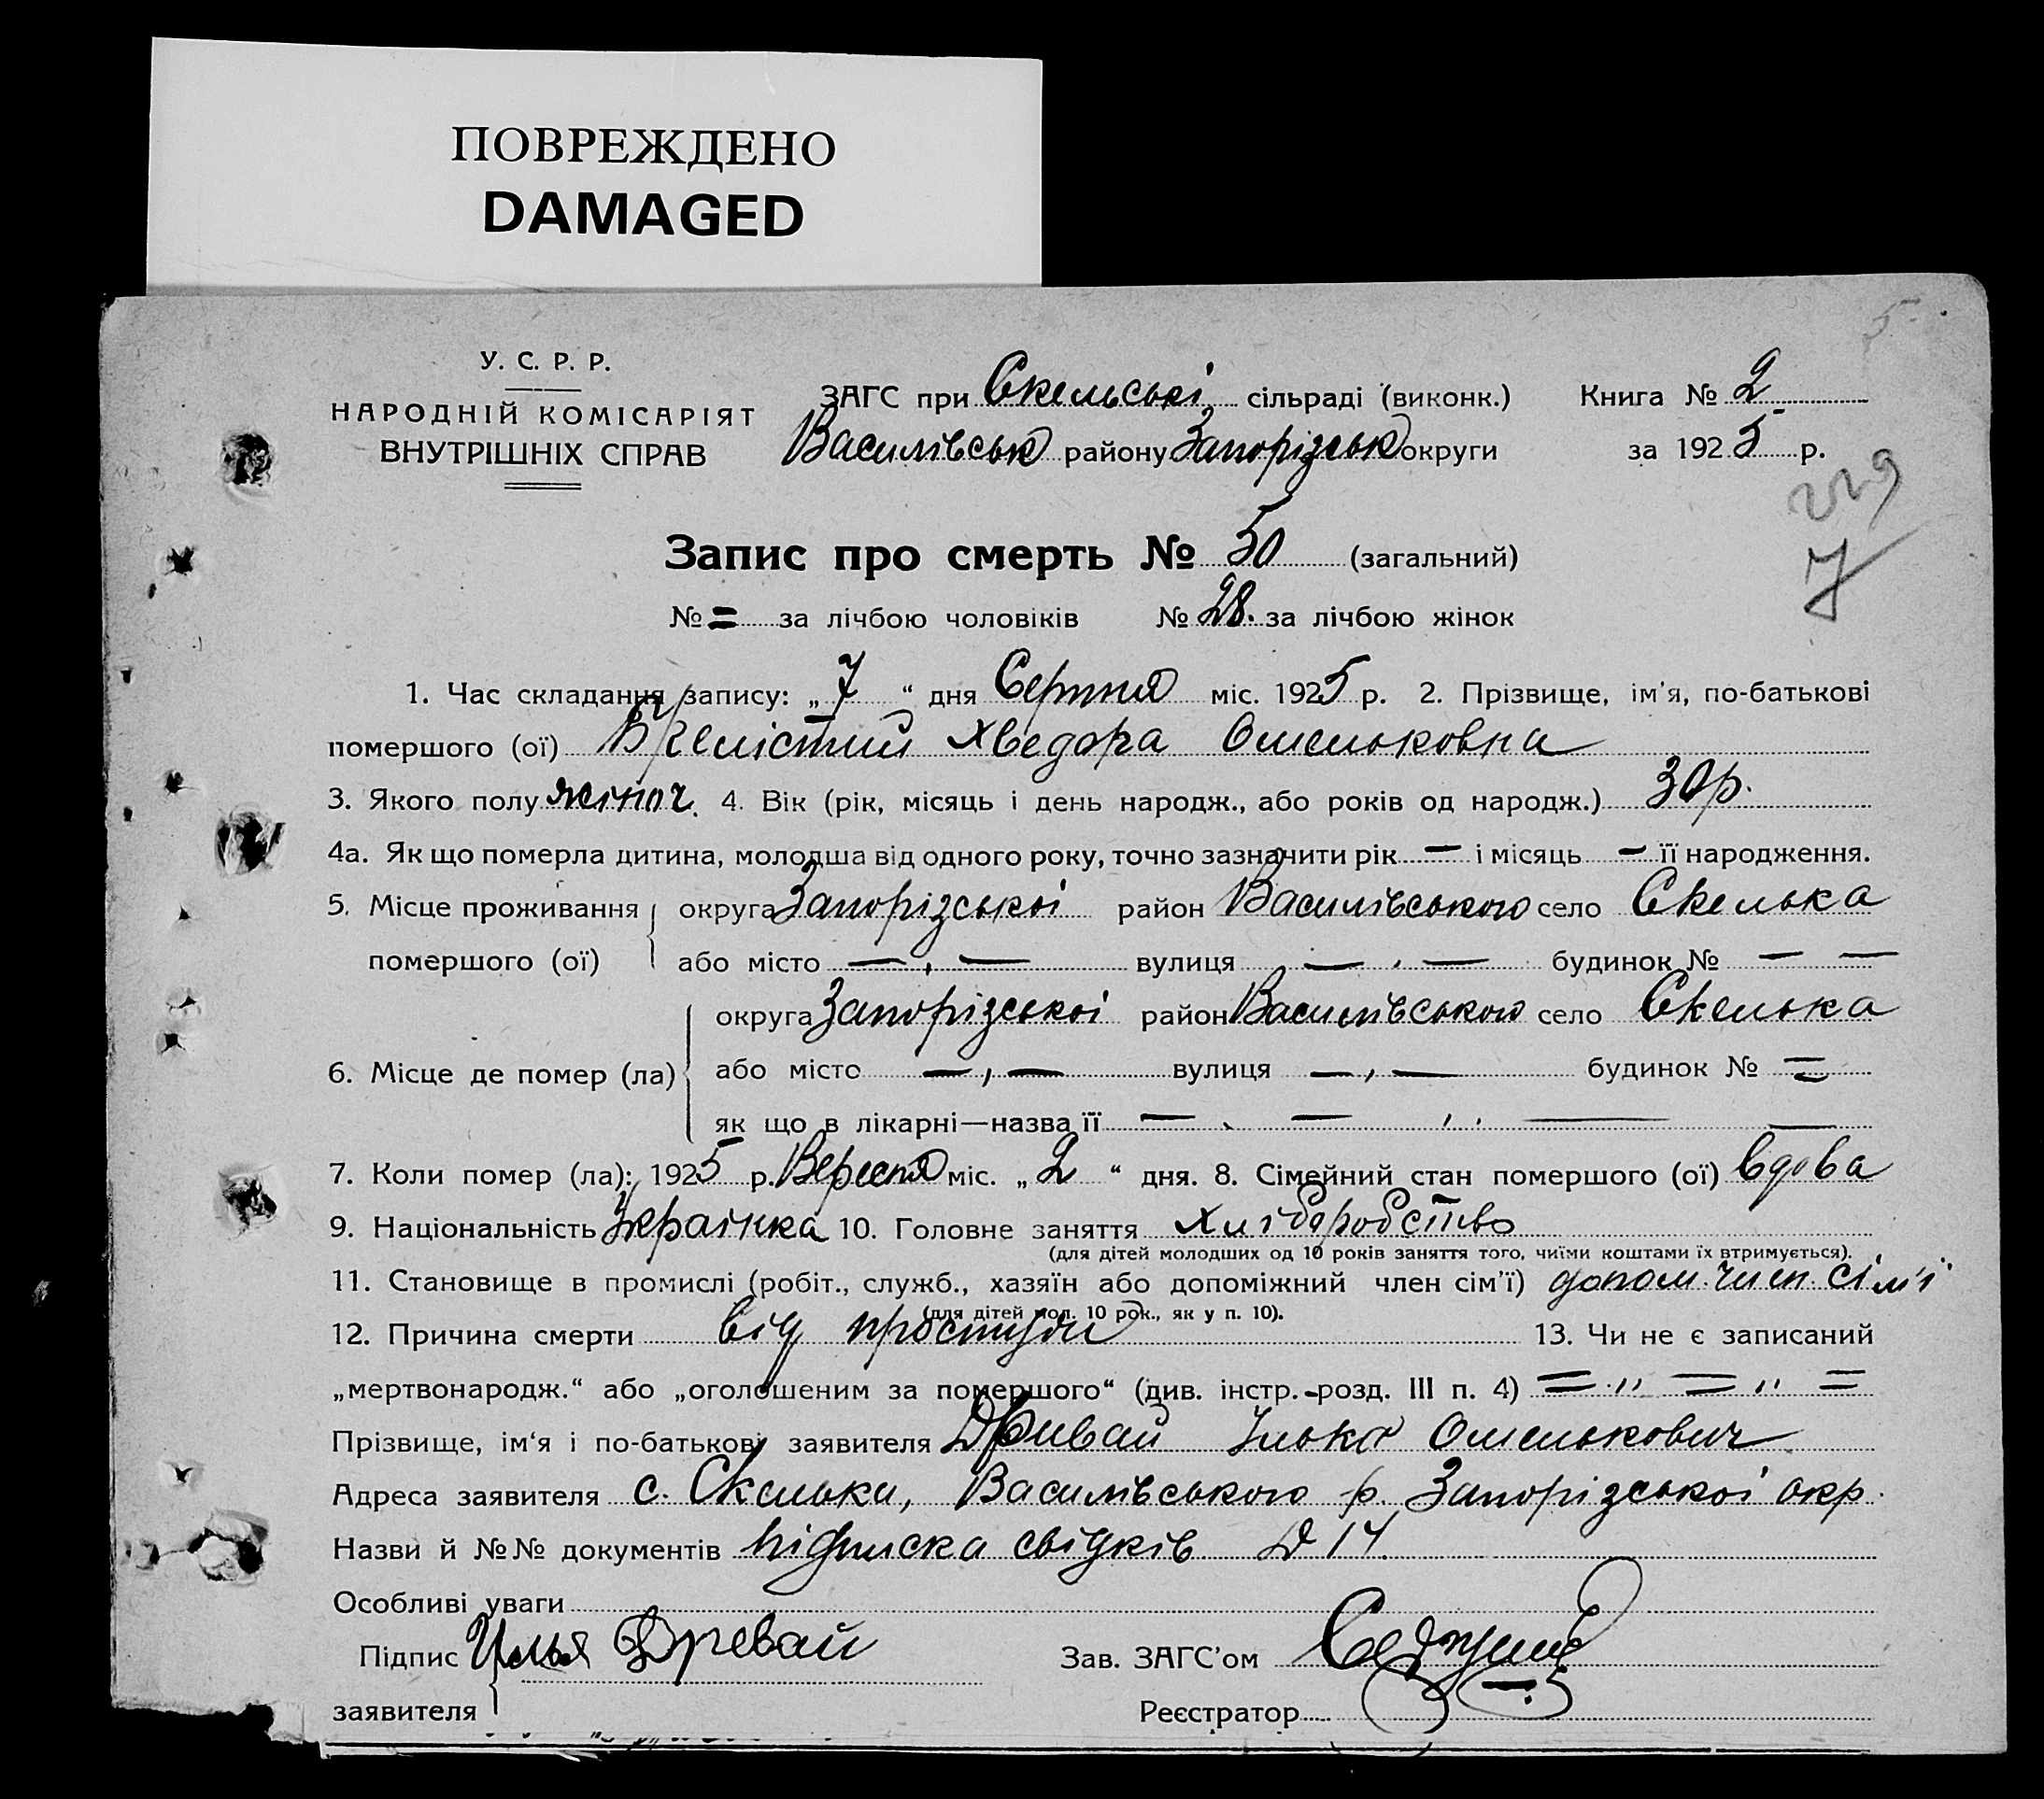 ПОВРЕЖДЕНО
DAMAGED
5
У. С. Р. Р.
НАРОДНІЙ КОМІСАРІЯТ
ВНУТРІШНІХ СПРАВ
ЗАГС при Скельські сільраді (виконк.) Книга № 2
Василівськ району Запорізськ округи за 1925 р.
229
7
Запис про смерть № 50 (загальний)
№ = за лічбою чоловіків № 28. за лічбою жінок
1. Час складання запису: „7“ дня Серпня міс. 1925 р. 2. Прізвище, ім'я, по-батькові
помершого (ої) Хведора Омельковна
3. Якого полу жіноч. 4. Вік (рік, місяць і день народж., або років од народж.) 30 р.
4а. Як що померла дитина, молодша від одного року, точно зазначити рік — і місяць — її народження.
5. Місце проживання округа Запорізської район Василівського село Скелька
помершого (ої) або місто — , — вулиця — . — будинок № — —
округа Запорізської район Василівського село Скелька
6. Місце де помер (ла) або місто — , — вулиця — , — будинок № =
як що в лікарні—назва її — . — ,, — —
7. Коли помер (ла): 1925 р. Вересня міс. „2“ дня. 8. Сімейний стан помершого (ої) вдова
9. Національність Українка 10. Головне заняття хліборобство
(для дітей молодших од 10 років заняття того, чиїми коштами їх втримується).
11. Становище в промислі (робіт., служб., хазяїн або допоміжний член сім'ї) допом. член. сім'ї
(для дітей мол. 10 рок., як у п. 10).
12. Причина смерти від простуди 13. Чи не є записаний
„мертвонародж.“ або „оголошеним за помершого“ (див. інстр.-розд. III п. 4) = ·,, = ,, =
Прізвище, ім'я і по-батькові заявителя Дривай Ілько Омелькович
Адреса заявителя с. Скельки, Василівського р. Запорізської окр.
Назви й №№ документів підписка свідків № 14.
Особливі уваги
Підпис Илья Древай Зав. ЗАГС'ом
заявителя Реєстратор